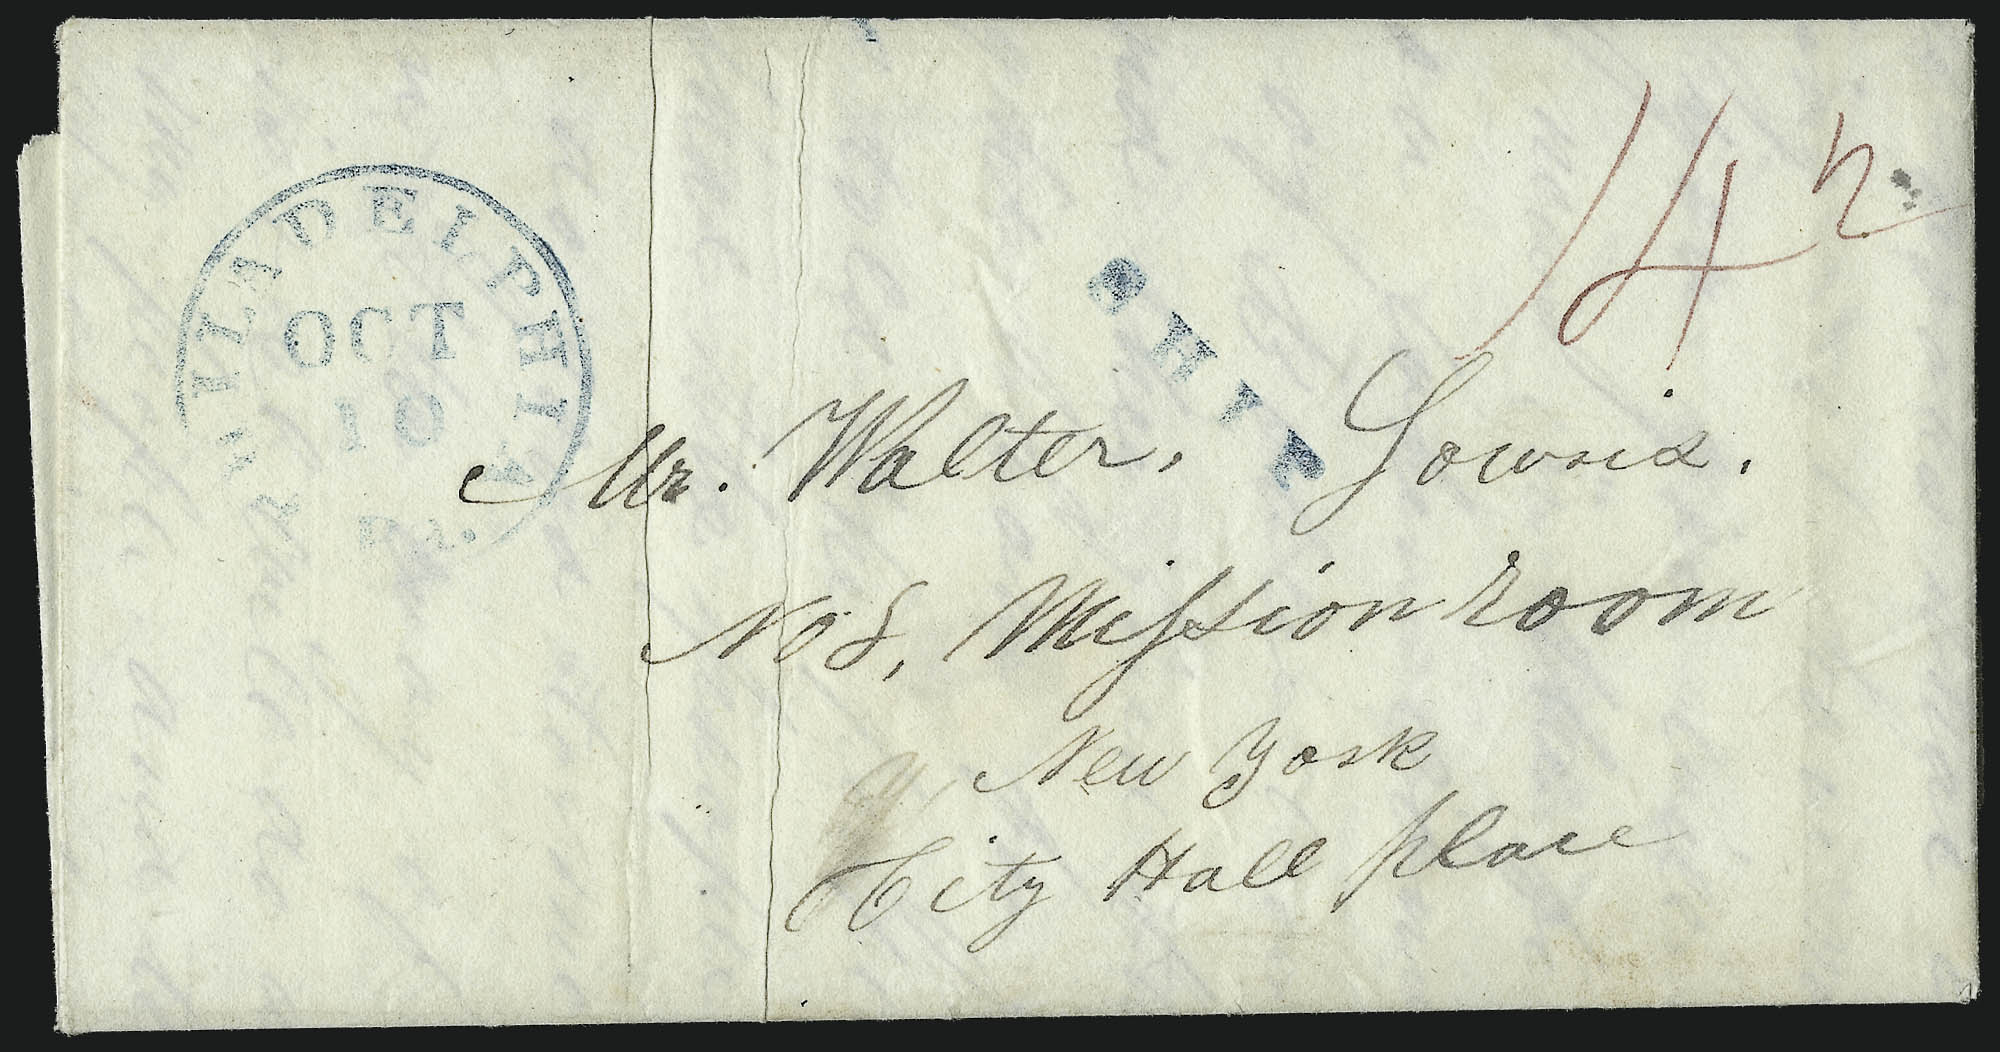 PHILADELPHIA Pa.
OCT
10
SHIP
14½
Mr. Walter. Lowrie.
No 8, Mission room
New York
City Hall place